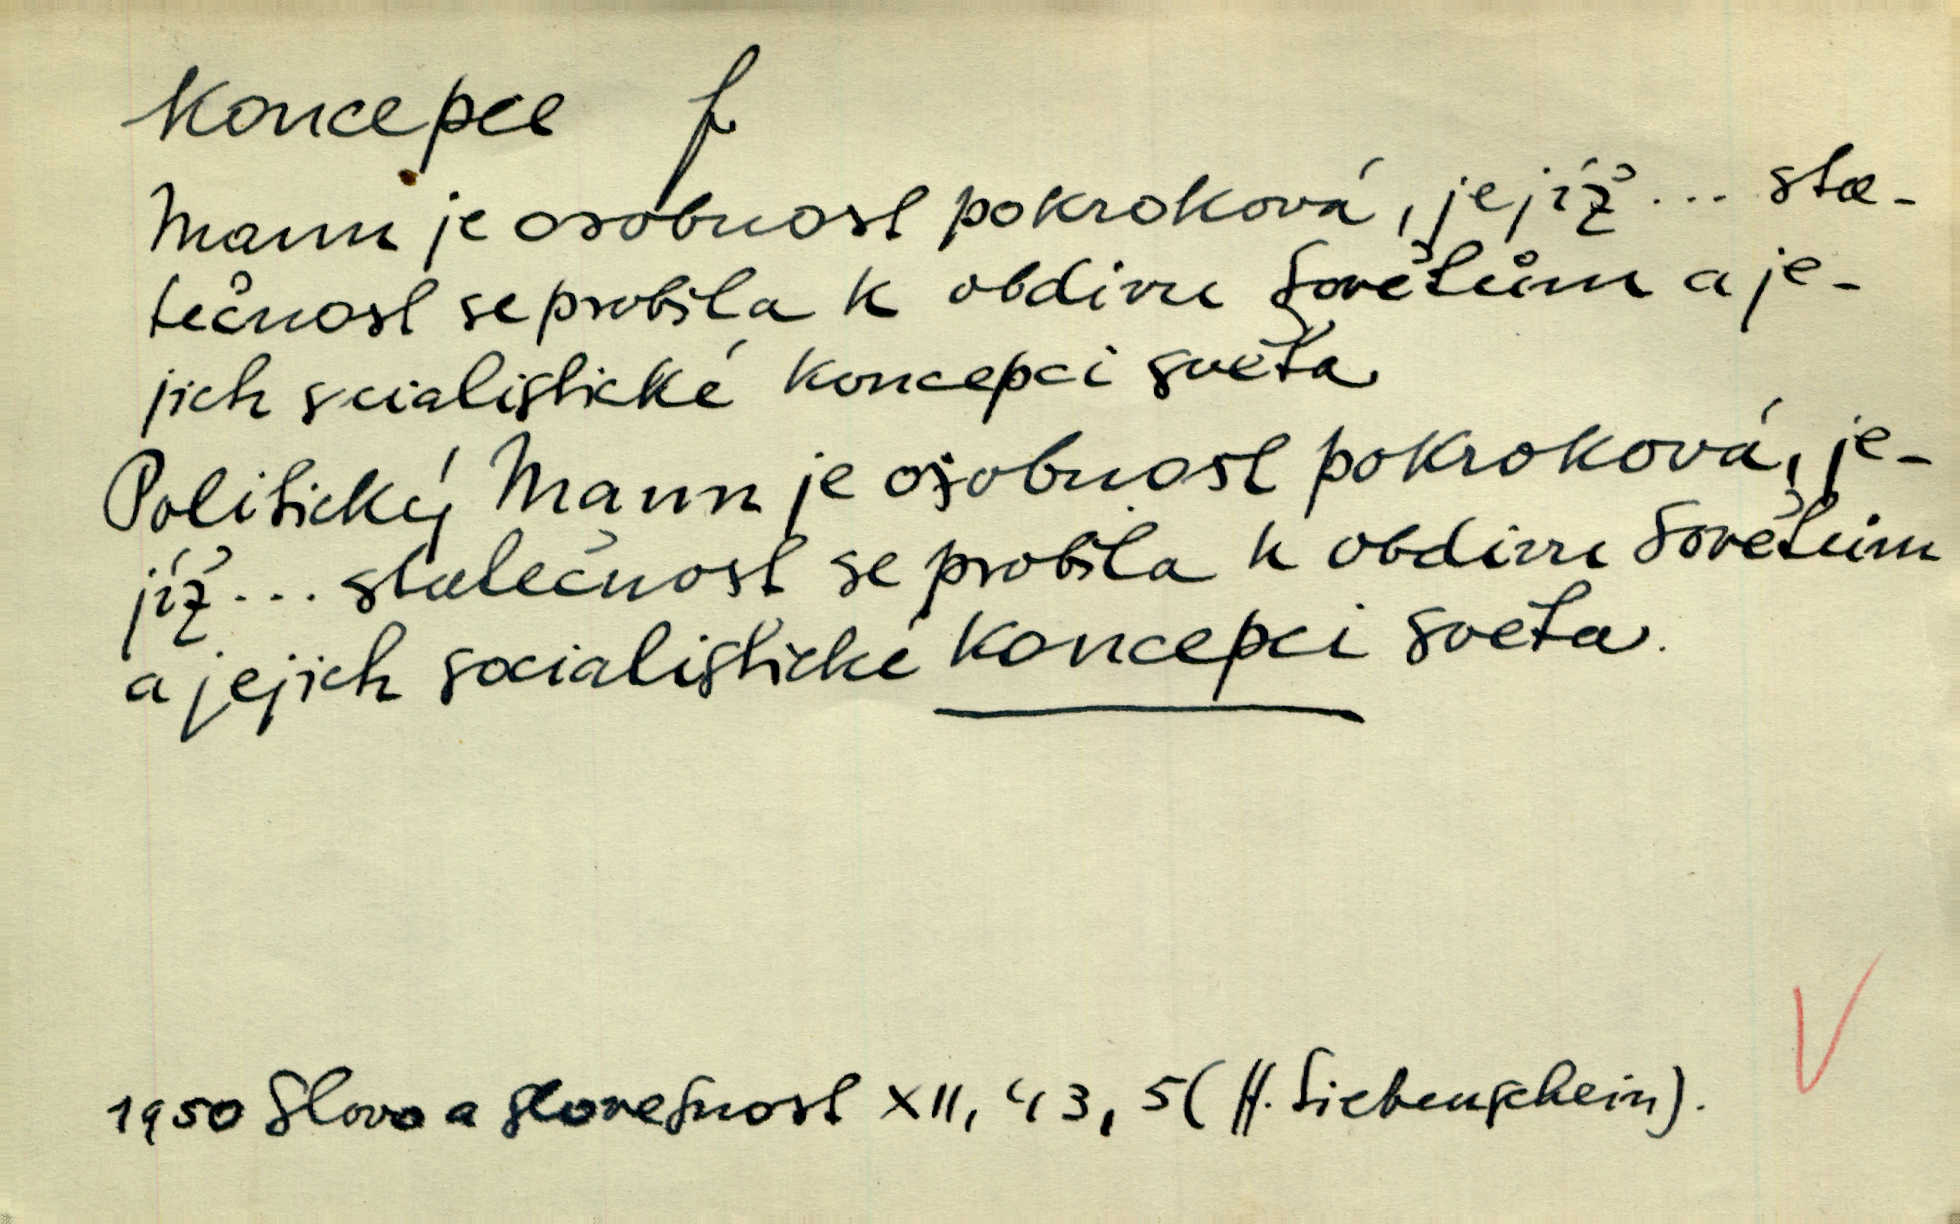 Koncepce f
Mann je osobnost pokroková, jejíž... sta-
tečnost se probila k obdivu Sovětům a je-
jich socialistické koncepci světa
Politický Mann je osobnost pokroková, je-
jíž... statečnost se probila k obdivu Sovětům
a jejich socialistické koncepci světa.
1950 Slovo a slovesnost XII, 43, 5 (H. Siebenschein).